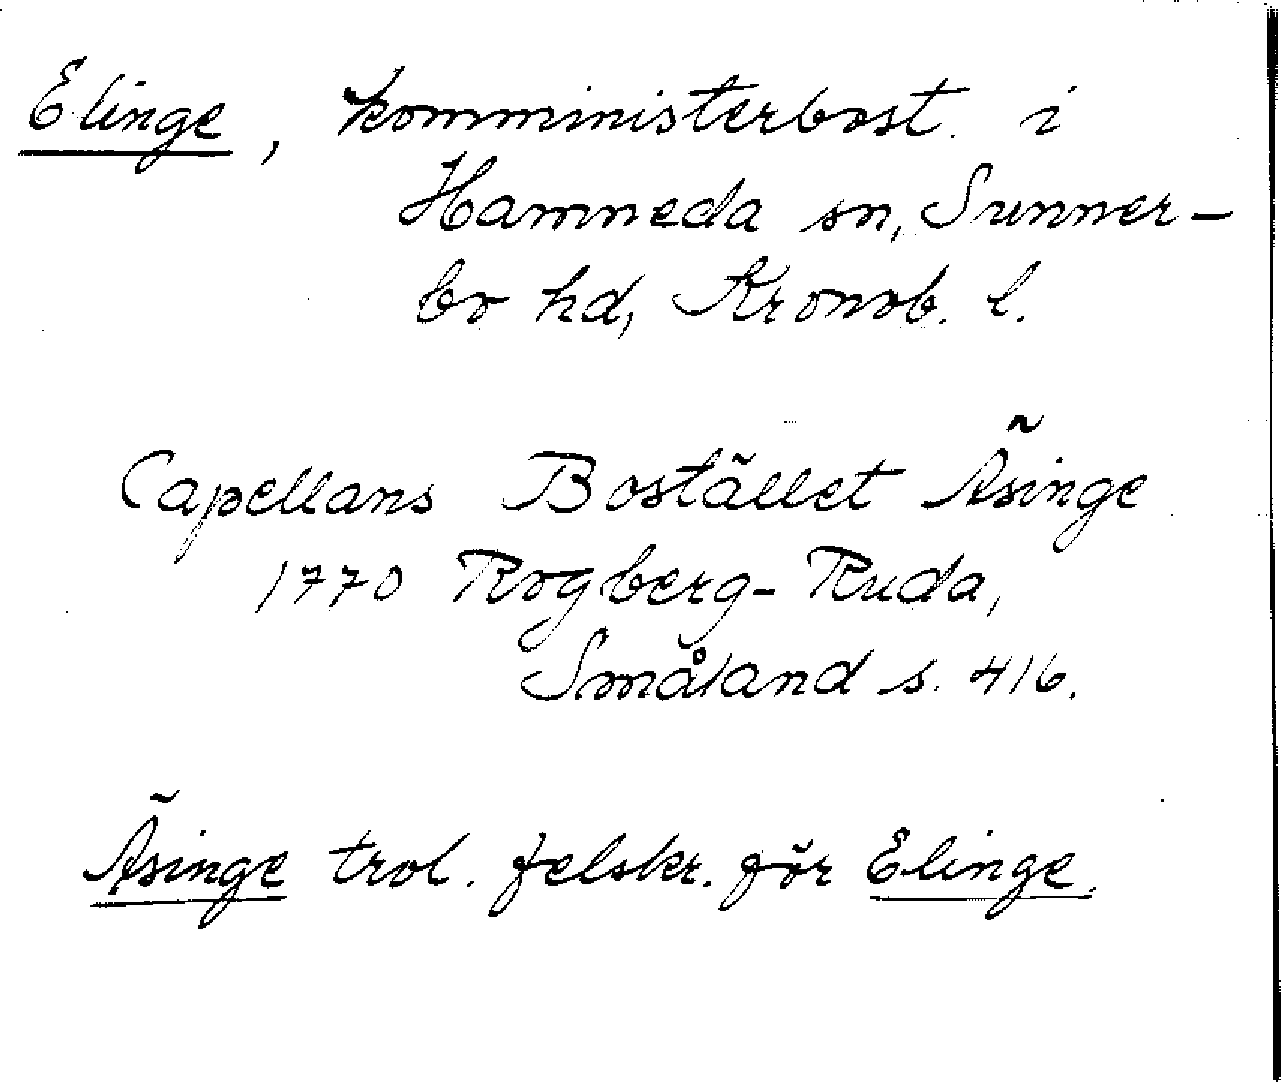 Elinge, komministerbost. i
Hamneda sn, Sunner-
bo hd, Kronob. l.
Capellans Bostället Äsinge
1770 Rogberg-Ruda,
Småland s. 416.
Äsinge trol. felskr. för Elinge.